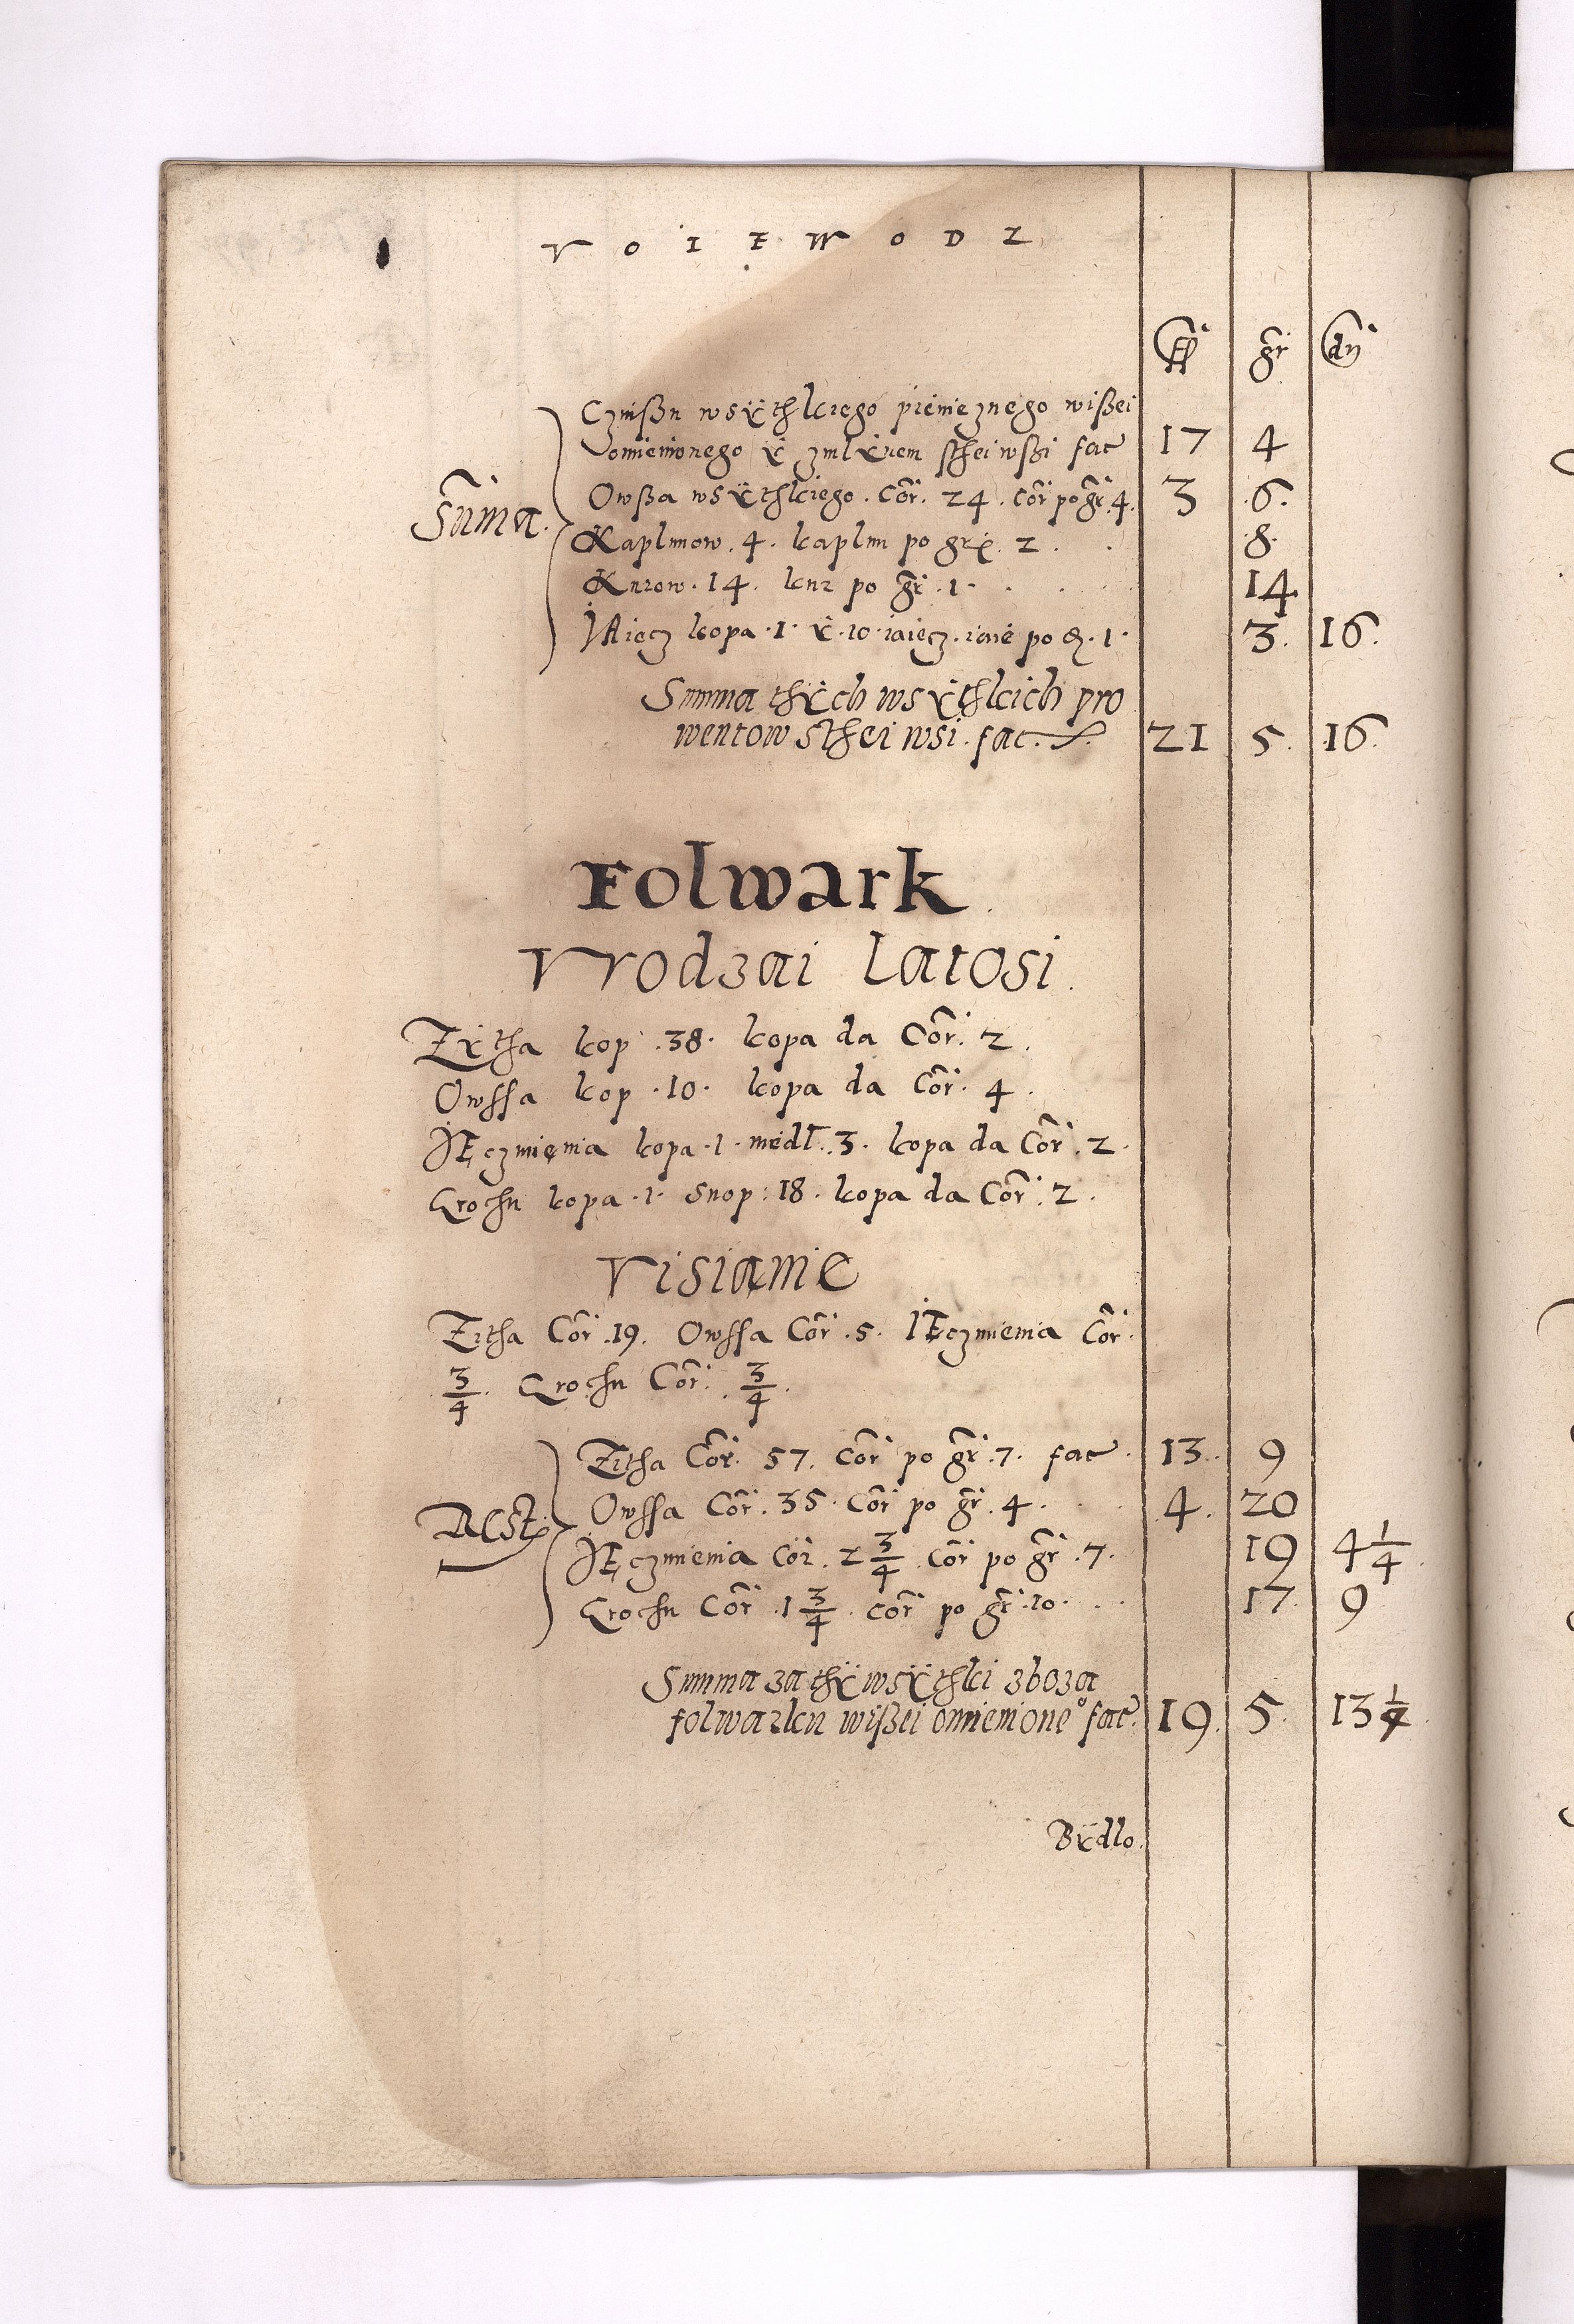 V O I E W O D Z
fl gr dn
Czinssu wsÿthkiego pienieznego wißei
omienionego ÿ zmlÿnem sthei wßi fac 17 4
Owßa wsÿthkiego. Cor. 24. Cor po gr. 4. 3 6.
Suma.
Kaplunow. 4. kaplun po gr. 2. 8.
Kurow. 14. kur po gr. 1. 14.
JAiecz kopa .1. ÿ .10. iaiecz. iaie po d. 1. 3. 16.
Summa thÿch wsÿthkich pro
wentow sthei wsi. fac. 21 5. 16.
Folwark.
Vrodzai Latosi.
Zÿtha kop .38. kopa da Cor. 2.
Owssa kop .10. kopa da Cor. 4.
JĘczmięnia kopa .1. mędl. 3. kopa da Cor. 2.
Grochu kopa .1. Snop: 18. kopa da Cor. 2.
Visianie
Zitha Cor. 19. Owssa Cor. 5. IĘczmienia Cor.
3/4. Grochu Cor. 3/4.
Zitha Cor. 57. Cor po gr. 7. fac. 13. 9
Owssa Cor. 35. Cor po gr. 4. 4. 20
Rest
JĘczmienia Cor. 2 3/4. Cor po gr. 7. 19 4 1/4.
Grochu Cor. 1 3/4. cor po gr. 10. 17. 9
Summa za thÿ wsÿthki zboza
folwarku wißei omienione° fac. 19. 5. 13 1/4.
Bÿdlo.